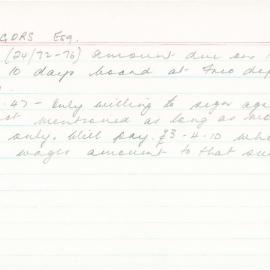 GDRS Esq.
(24/72-76) Amount due on
10 days board at
.47 - Only willing to sign
mentioned as long as
only. Will pay £3-4-10
wages amount to that